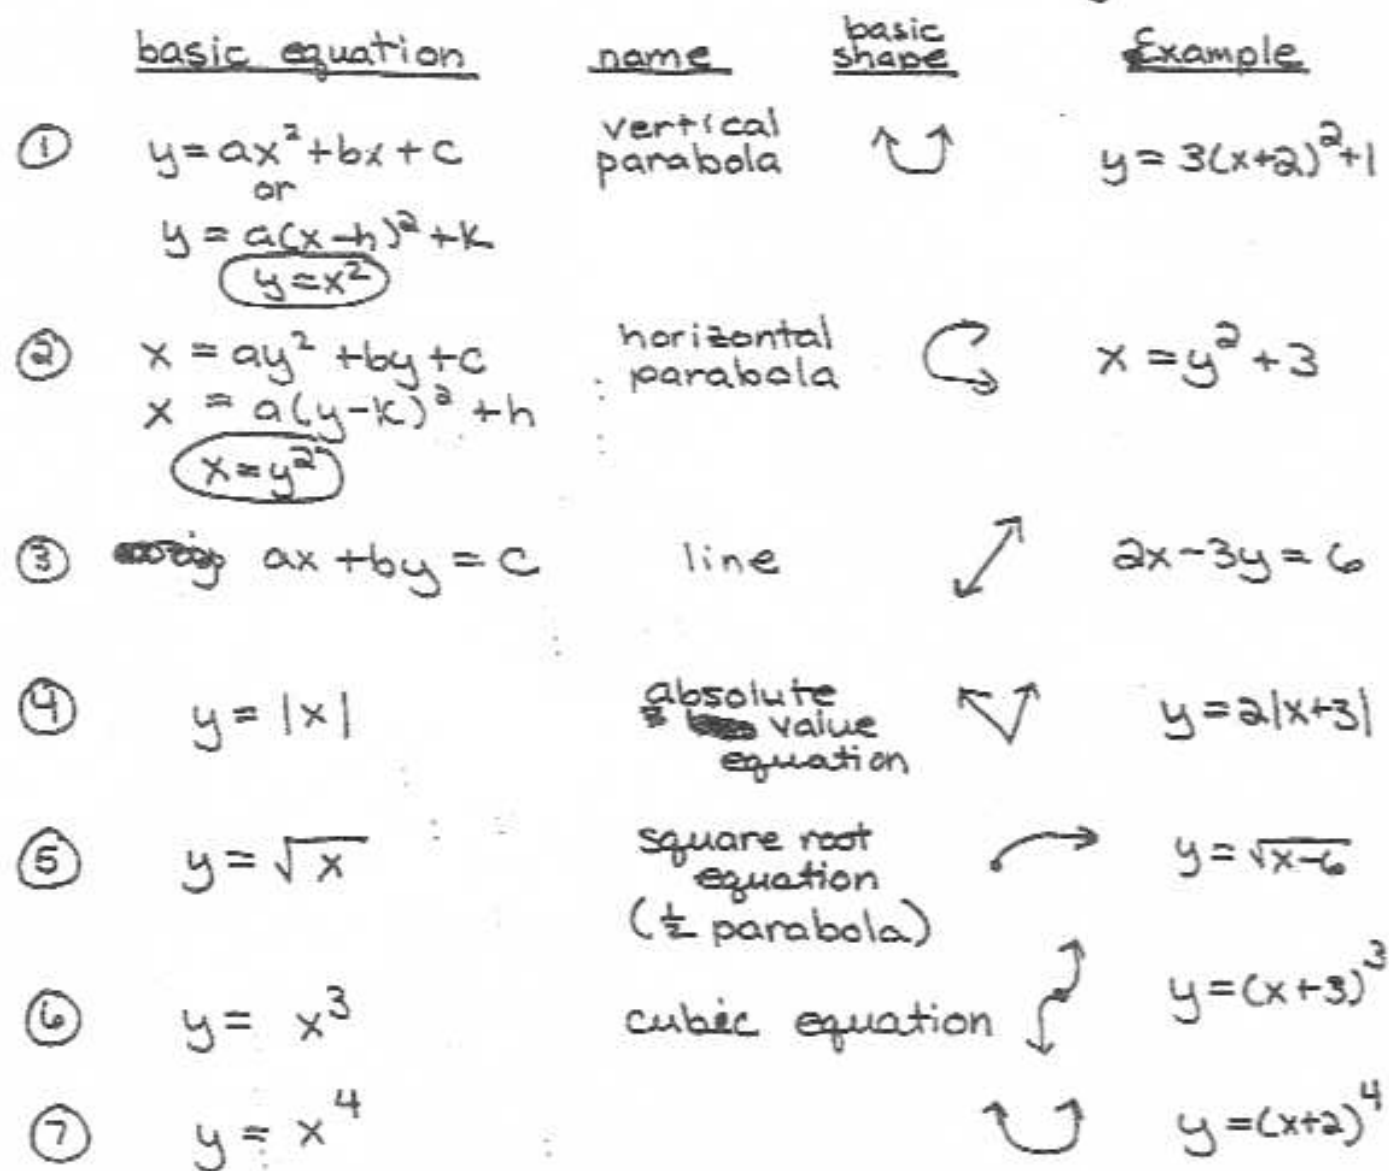 basic equation name basic shape Example
① y = ax² + bx + c vertical parabola y = 3(x+2)² + 1
or
y = a(x-h)² + k
y = x²
② x = ay² + by + c horizontal parabola x = y² + 3
x = a(y-k)² + h
x = y²
③ ax + by = c line 2x - 3y = 6
④ y = |x| absolute value equation y = 2|x+3|
⑤ y = √x square root equation (½ parabola) y = √x-6
⑥ y = x³ cubic equation y = (x+3)³
⑦ y = x⁴ y = (x+2)⁴